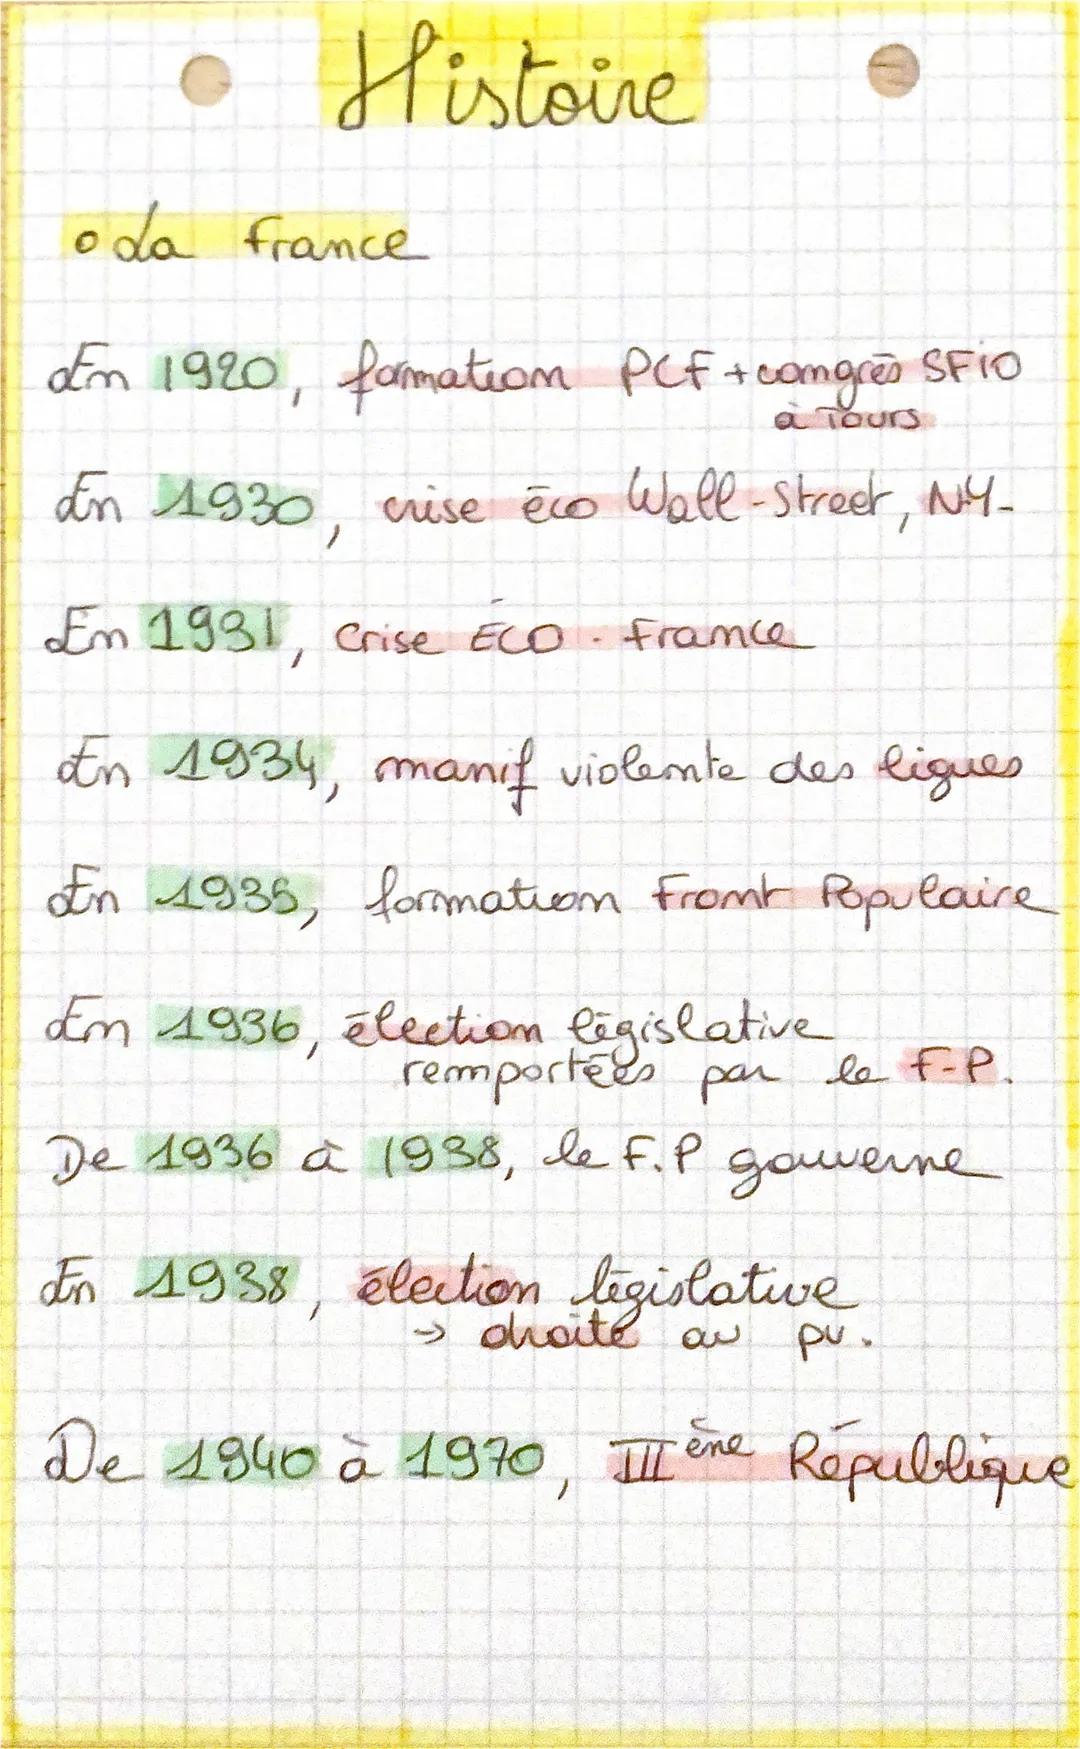 Histoire
• La france
En 1920, formation PCF + congrès SFIO
à Tours
En 1930, crise éco Wall-Street, NY.
En 1931, crise ÉCO. france
En 1934, manif violente des ligues
En 1935, formation Front Populaire
En 1936, élection législative
remportées par le F-P.
De 1936 à 1938, le F.P gouverne
En 1938, élection législative
→ droite au pv.
De 1940 à 1970, III ène République